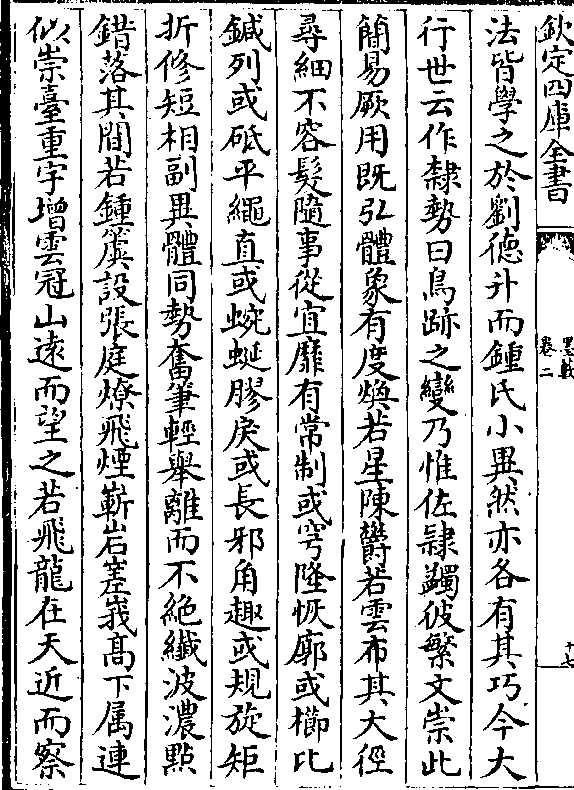 欽定四庫全書
墨藪
卷二
十七
法皆學之於劉德升而鍾氏小異然亦各有其巧今大
行世云作隸勢曰鳥跡之變乃惟佐隸蠲彼繁文崇此
簡易厥用既弘體象有度煥若星陳欝若雲布其大徑
尋細不容髮隨事從宜靡有常制或穹隆恢廓或櫛比
鍼列或砥平繩直或蜿蜒膠戾或長邪角趣或規旋矩
折修短相副異體同勢奮筆輕舉離而不絶纎波濃點
錯落其間若鍾簴設張庭燎飛煙嶄岩嵯峩髙下属連
似崇臺重宇增雲冠山遠而望之若飛龍在天近而察